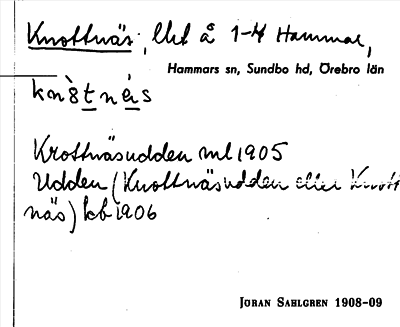 Knottnäs, lht å 1-4 Hammar,
Hammars sn, Sundbo hd, Örebro län
Krottnäsudden ml 1905
Udden (Knottnäsudden eller Knott
näs) kb 1906
JÖRAN SAHLGREN 1908-09